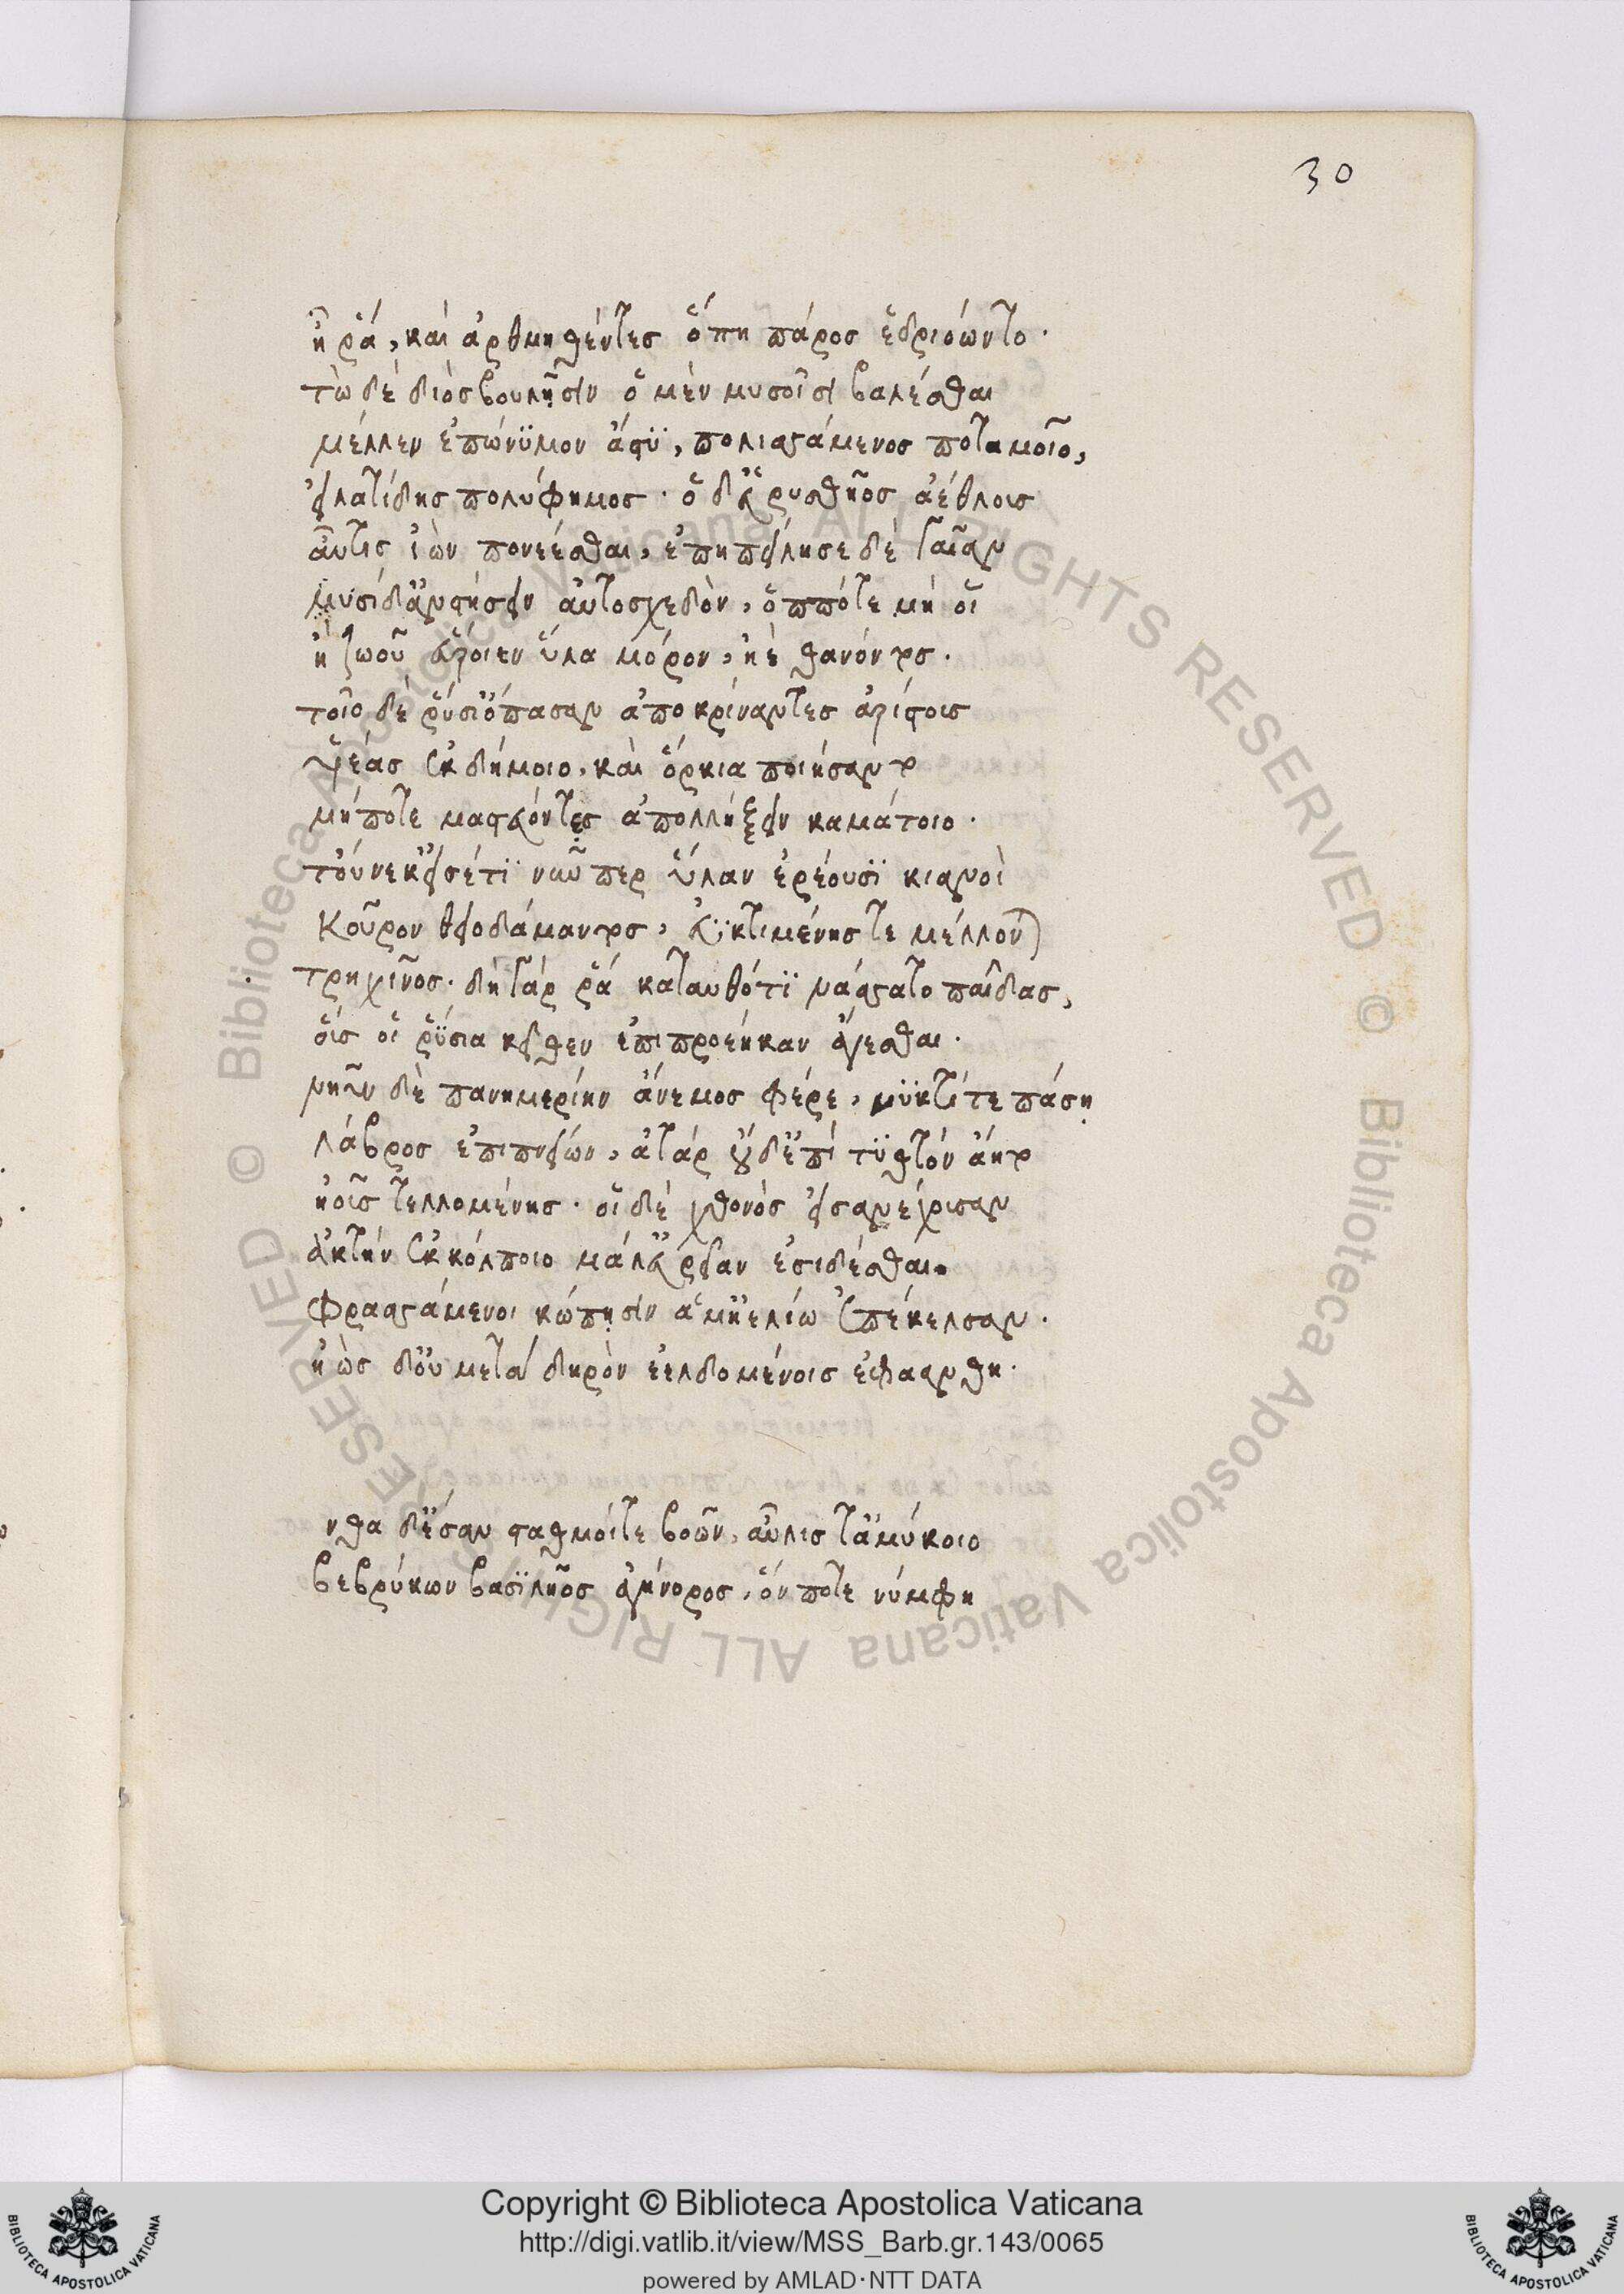 30
ἦ ῥά, καὶ ἀρθμηθέντες ὅπη πάρος ἑδριόωντο·
τὼ δὲ διὸς βουλῇσιν ὁ μὲν μυσοῖσι βαλέσθαι
μέλλεν ἐπώνϋμον ἄστϋ, πολισσάμενος ποταμοῖο,
εἰλατίδης πολύφημος· ὁ δ' εὐρυσθῆος ἀέθλοις
αὖτις ἰὼν πονέεσθαι, ἐπηπείλησε δὲ γαῖαν
μυσίδ' ἀνστήσειν αὐτοσχεδὸν, ὁππότε μή οἱ
ἢ ζωοῦ εὕροιεν ὕλα μόρον, ἠὲ θανόντος.
τοῖο δὲ ῥύσι' ὄπασαν ἀποκρίναντες ἀρίστοις
υἱέας ἐκ δήμοιο, καὶ ὅρκια ποιήσαντο
μήποτε μαστεύοντες ἀπολλήξειν καμάτοιο.
τούνεκ' εἰσέτϊ νῦν περ ὕλαν ἐρέουσϊ κιανοὶ
κοῦρον θειοδάμαντος, ἐϋκτιμένης τε μέλλονται
τρηχῖνος. δὴ γάρ ῥα κατ' αυθότϊ νάσσατο παῖδας,
οἵς οἱ ῥύσια κεῖθεν ἐπιπροέηκαν ἄγεσθαι.
νηῦν δὲ πανημερίην ἄνεμος φέρε, νϋκτί τε πάσῃ
λάβρος ἐπιπνείων, ἀτὰρ οὐδ' ἐπὶ τϋτθὸν ἄητο
ἠοῦς τελλομένης. οἱ δὲ χθονὸς εἰσανέχουσαν
ἀκτὴν ἐκ κόλποιο μάλ' εὐρεῖαν ἐσιδέσθαι.
φρασσάμενοι κώπῃσιν ἅμ' ἠελίω ἐπέκελσαν.
ἠὼς δ' οὖν μετὰ δηρὸν ἐελδομένοις ἐφαάνθη.
νθα δ' ἔσαν σταθμοί τε βοῶν, αὖλις τ' ἀμύκοιο
βεβρύκων βασϊλῆος ἀγήνορος, ὅν ποτε νύμφη
Copyright © Biblioteca Apostolica Vaticana
http://digi.vatlib.it/view/MSS_Barb.gr.143/0065
powered by AMLAD·NTT DATA
BIBLIOTECA APOSTOLICA VATICANA
BIBLIOTECA APOSTOLICA VATICANA
© Biblioteca Apostolica Vaticana ALL RIGHTS RESERVED © Biblioteca Apostolica Vaticana ALL RIGHTS RESERVED